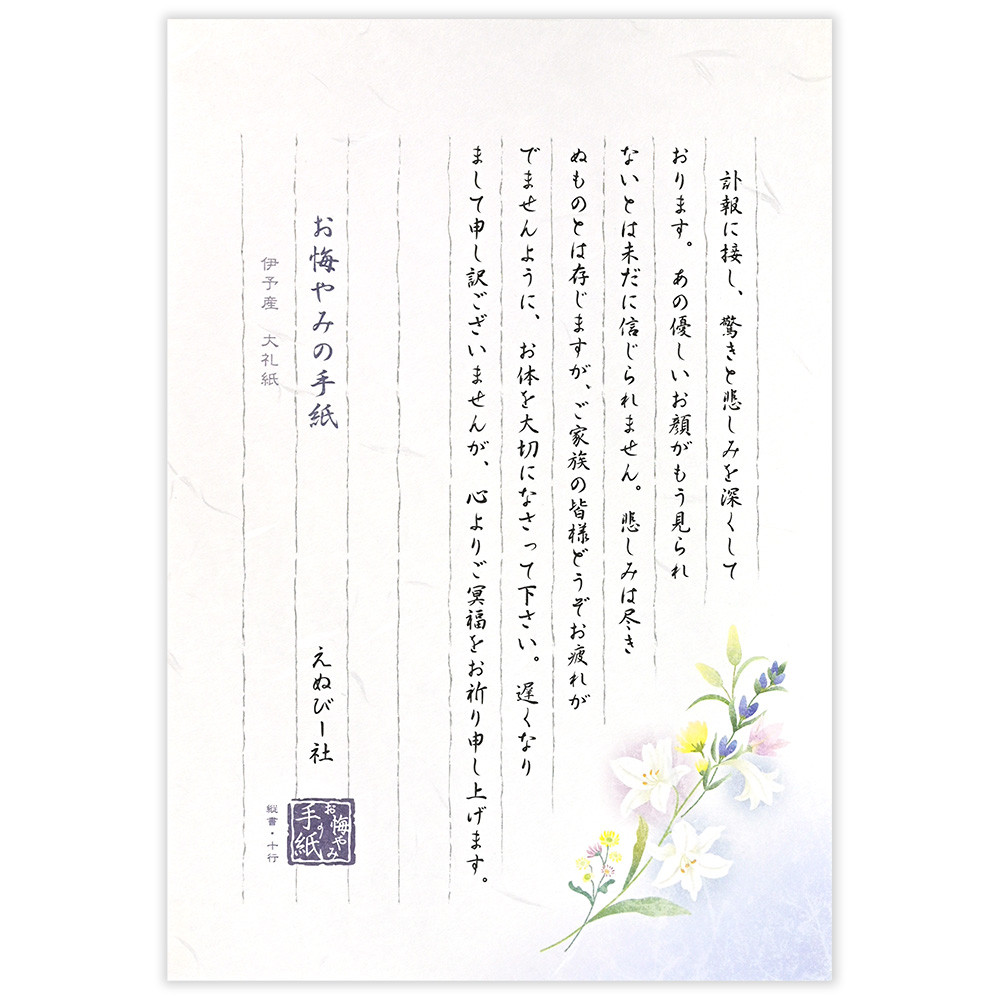 訃報に接し、驚きと悲しみを深くして
おります。あの優しいお顔がもう見られ
ないとは未だに信じられません。悲しみは尽き
ぬものとは存じますが、ご家族の皆様どうぞお疲れが
でませんように、お体を大切になさって下さい。遅くなり
まして申し訳ございませんが、心よりご冥福をお祈り申し上げます。
お悔やみの手紙
えぬびー社
伊予産 大礼紙
お悔やみ
の
手紙
縦書・十行